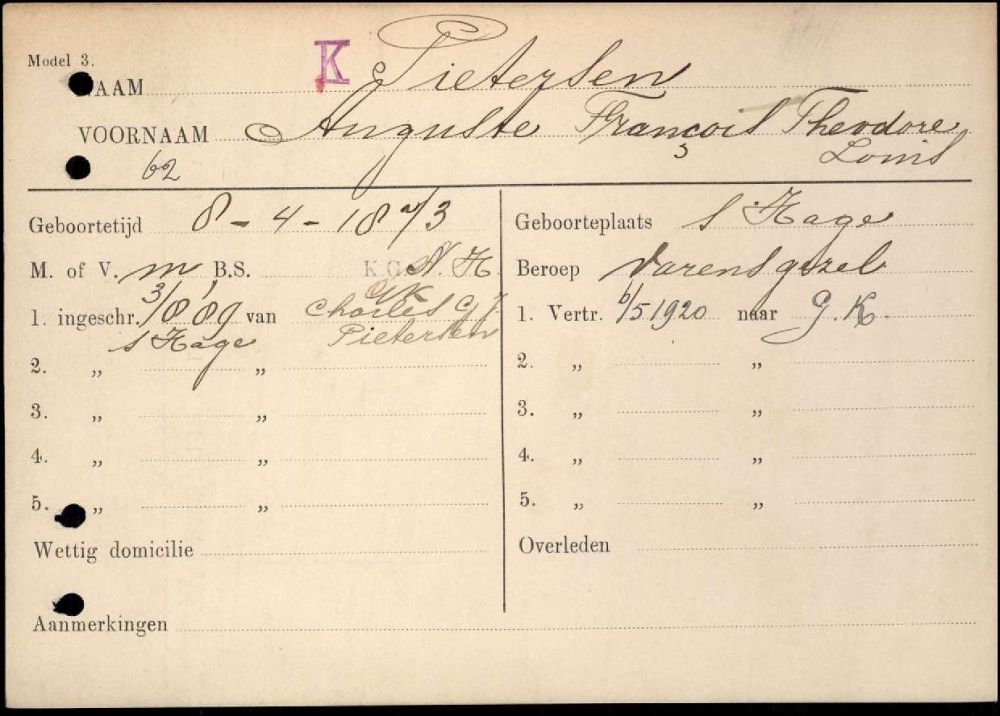 Model 3.
K
NAAM Pietersen
VOORNAAM Auguste François Theodore
Louis
62
Geboortetijd 8-4-1873
Geboorteplaats s Hage
M. of V. m, B.S. K.G. N. H.
Beroep Varensgezel
G K
1. ingeschr. 3/8 89 van Charles G J.
s Hage Pietersen
1. Vertr. 6/5 1920 naar G. K.
2. „ „
2. „ „
3. „ „
3. „ „
4. „ „
4. „ „
5. „ „
5. „ „
Wettig domicilie
Overleden
Aanmerkingen